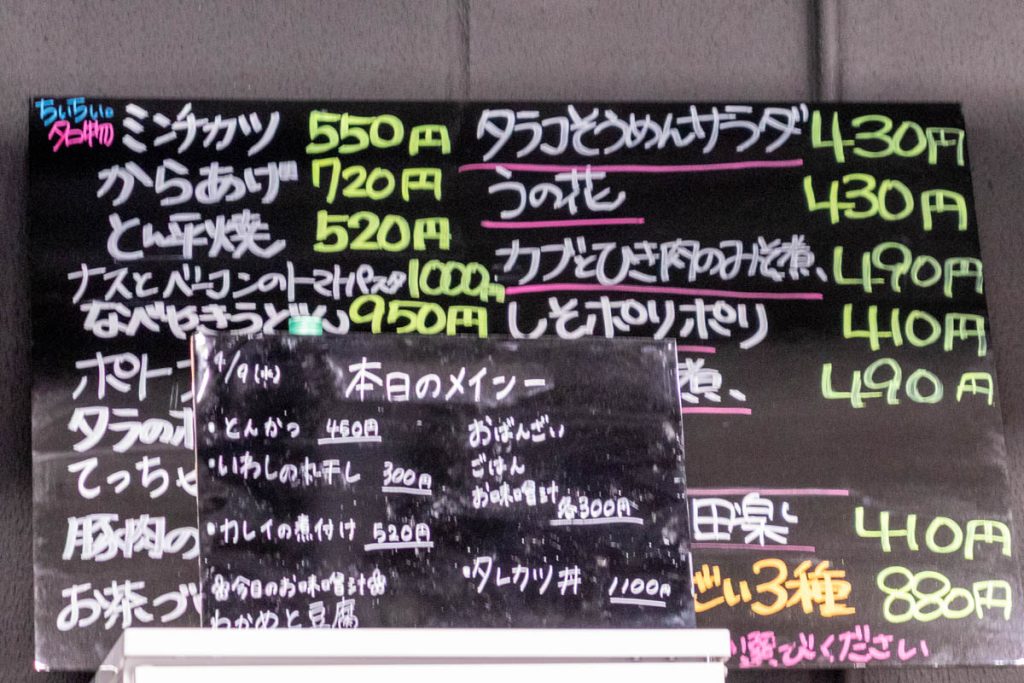 ちぃちぃの
名物
ミンチカツ 550円
からあげ 720円
とん平焼 520円
ナスとベーコンのトマトパスタ 1000円
なべやきうどん 950円
ポト
タラの
てっちゃ
豚肉の
お茶づ
タラコそうめんサラダ 430円
うの花 430円
カブとひき肉のみそ煮、 490円
しそポリポリ 410円
煮、 490円
田楽 410円
ざい3種 880円
選びください
4/9(水) 本日のメイン一
・とんかつ 450円
・いわしの丸干し 300円
・カレイの煮付け 520円
❀今日のお味噌汁❀
わかめと豆腐
おばんざい
ごはん
お味噌汁
各300円
・タレカツ丼 1100円